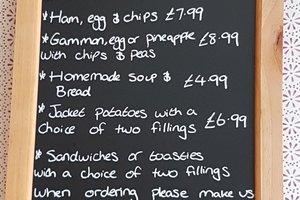 * Ham, egg & chips £7.99
* Gammon, egg or pineapple £8.99
with chips & peas
* Homemade soup & £4.99
Bread
* Jacket potatoes with a
choice of two fillings £6.99
* Sandwiches or toasties
with a choice of two fillings
when ordering please make us